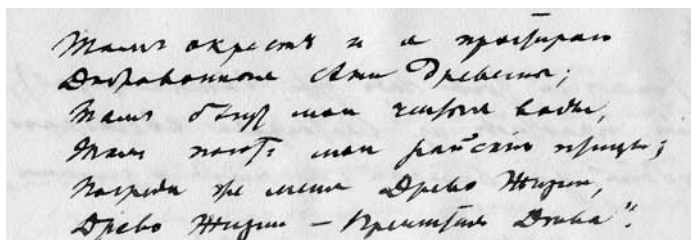 Тамъ окрестъ и я простираю
Дубравонныя сѣни древесны;
Тамъ бѣгут мои четыре воды,
Тамъ поютъ мои райскія птицы;
Посреди же меня Древо Жизни,
Древо Жизни – Пречистая Дѣва".